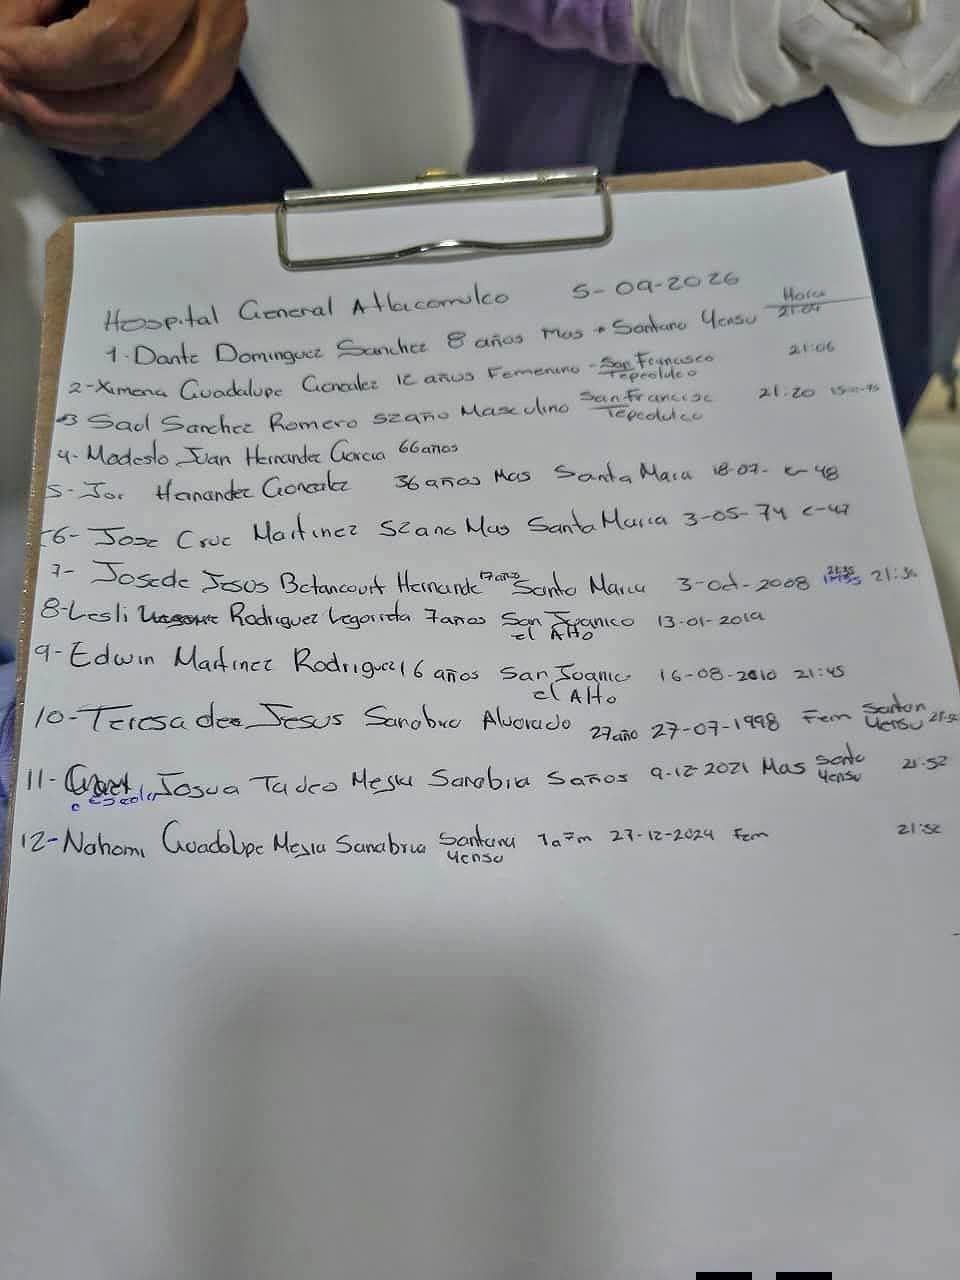 Hospital General Atlacomulco 5-09-2026 Hora
1-Dante Dominguez Sanchez 8 años Mas - Santana Yensu 21:04
2-Ximena Guadalupe Gonzalez 12 años Femenino - San Francisco Tepeolulco 21:06
3 Saul Sanchez Romero 52 año Masculino San Francisc Tepeolulco 21:20
4-Modesto Juan Hernandez Garcia 66 años
5-Jor Hernandez Gonzalez 36 años Mas Santa Mara 18-07- C-48
6-Jose Cruz Martinez 52 ano Mas Santa Maria 3-05-74 C-47
7-Jose de Jesus Betancourt Hernande 17 año Santa Maria 3-Oct-2008 21:36
8-Lesli Rodriguez Legorreta 7 anos San Juanico el Alto 13-01-2019
9-Edwin Martinez Rodriguez 16 años San Juanic el Alto 16-08-2010 21:45
10-Teresa de Jesus Sanabria Alvarado 27 año 27-07-1998 Fem Santan Yensu
11- Josua Tadeo Mejia Sanabria 5 años 9-12-2021 Mas Santa Yensu 21:52
12-Nahomi Guadalupe Mejia Sanabria Santana Yensu 1a 7m 27-12-2024 Fem 21:52